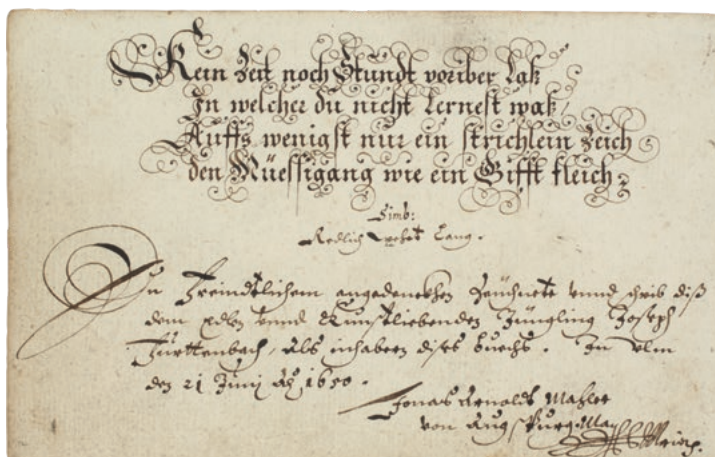 Kein Zeit noch Stundt voriber Laß
In welcher du nicht lernest waß,
Auffs wenigst nur ein strichlein Zeich
den Müessigang wie ein Gifft fleich
Simb:
Redlich wehrt Lang.
Zu Freindtlichem angedenckhen Zeichnete vnnd schrib diß
dem Edlen vnnd Kunstliebenden Jüngling Joseph
Furttenbach, als inhabern dises buechs. In Vlm
den 21 Junij Aº 1650.
Jonas Arnoldt Mahler
von Augspurg